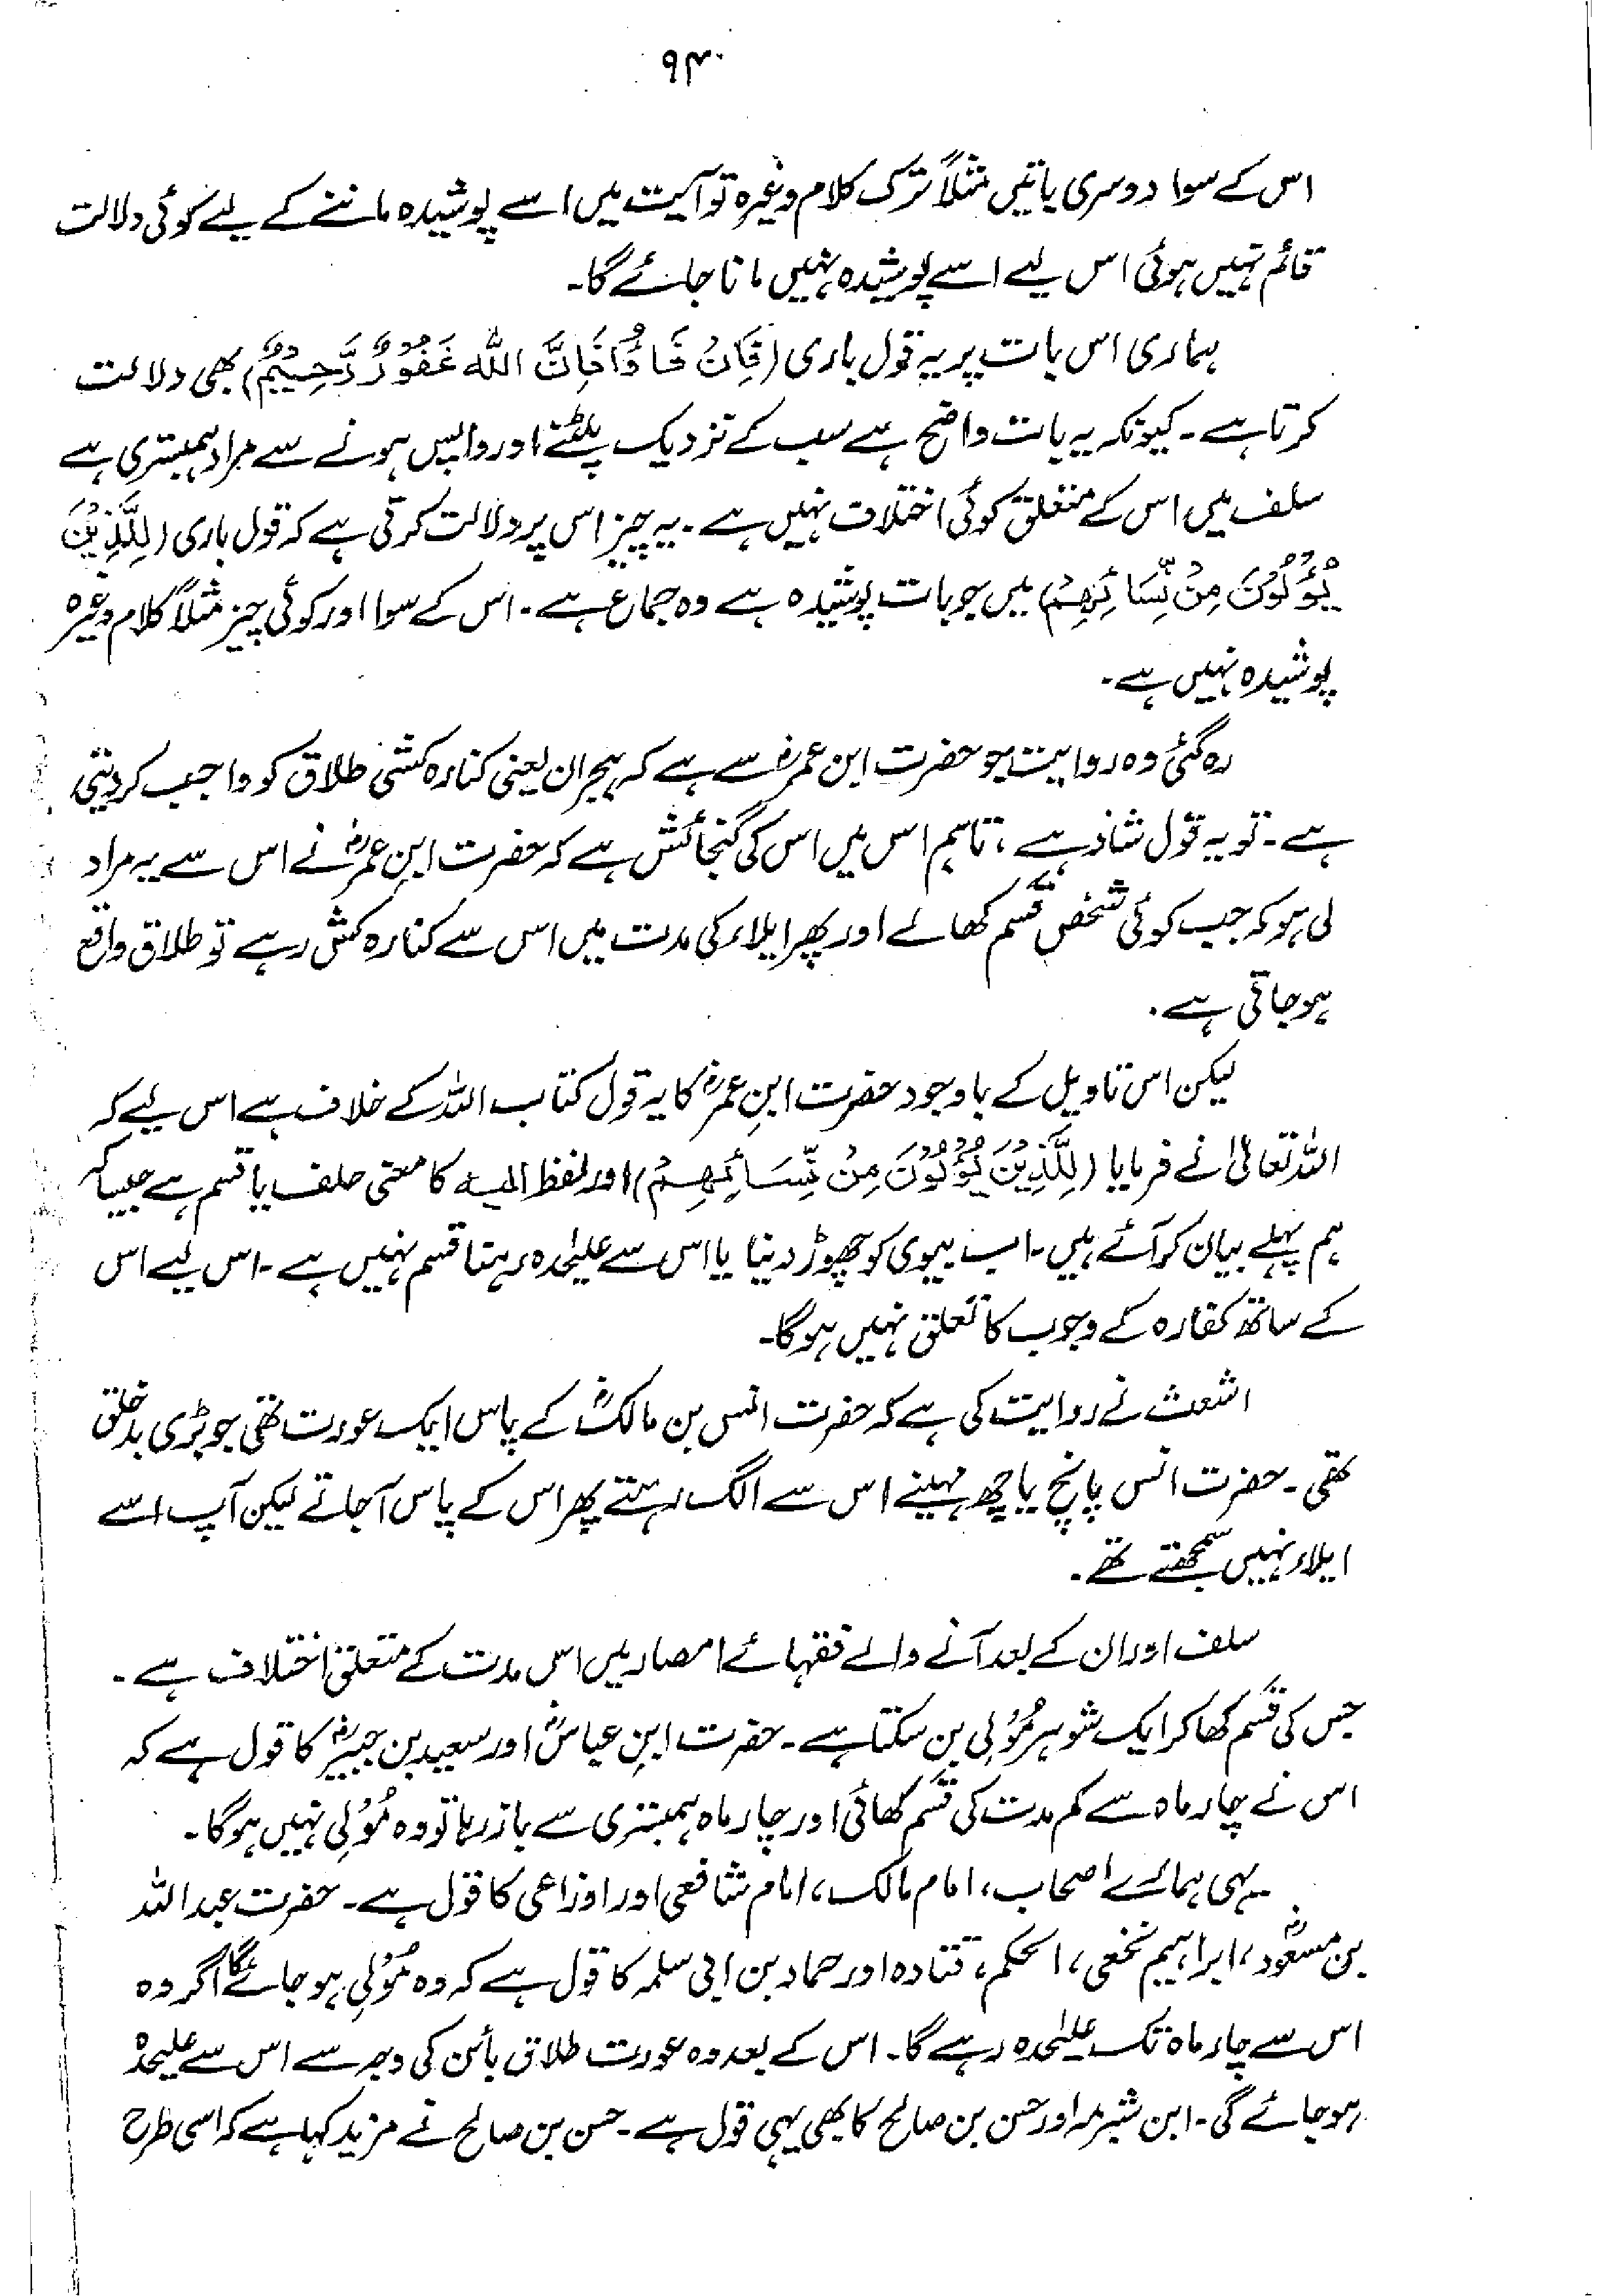 ۹۴۰
اس کے سوا دوسری باتیں مثلاً ترک کلام وغیرہ تو آیت میں اسے پوشیدہ ماننے کے لیے کوئی دلالت
قائم نہیں ہوئی اس لیے اسے پوشیدہ نہیں مانا جائے گا۔
ہماری اس بات پر یہ قول باری (فَاِنْ فَاءُوْا فَاِنَّ اللہ غَفُوْرٌ رَّحِیْمٌ) بھی دلالت
کرتا ہے۔ کیونکہ یہ بات واضح ہے سب کے نزدیک پلٹنے اور واپس ہونے سے مراد ہمبستری ہے
سلف میں اس کے متعلق کوئی اختلاف نہیں ہے۔ یہ چیز اس پر دلالت کرتی ہے کہ قول باری (لِلَّذِیْنَ
یُؤْلُوْنَ مِنْ نِّسَائِهِمْ) میں جو بات پوشیدہ ہے وہ جماع ہے۔ اس کے سوا اور کوئی چیز مثلاً کلام وغیرہ
پوشیدہ نہیں ہے۔
رہ گئی وہ روایت جو حضرت ابن عمرؓ سے ہے کہ ہجران یعنی کنارہ کشی طلاق کو واجب کر دیتی
ہے۔ تو یہ قول شاذ ہے، تاہم اس میں اس کی گنجائش ہے کہ حضرت ابنِ عمرؓ نے اس سے یہ مراد
لی ہو کہ جب کوئی شخص قسم کھالے اور پھر ایلاء کی مدت میں اس سے کنارہ کش رہے تو طلاق واقع
ہو جاتی ہے۔
لیکن اس تاویل کے باوجود حضرت ابنِ عمرؓ کا یہ قول کتاب اللہ کے خلاف ہے اس لیے کہ
اللہ تعالیٰ نے فرمایا (لِلَّذِیْنَ یُؤْلُوْنَ مِنْ نِّسَائِهِمْ) اور لفظ الیہ کا معنی حلف یا قسم ہے جیسا کہ
ہم پہلے بیان کر آئے ہیں۔ اب بیوی کو چھوڑ دینا یا اس سے علیٰحدہ رہنا قسم نہیں ہے۔ اس لیے اس
کے ساتھ کفارہ کے وجوب کا تعلق نہیں ہوگا۔
اشعث نے روایت کی ہے کہ حضرت انس بن مالکؓ کے پاس ایک عورت تھی جو بڑی بدخلق
تھی۔ حضرت انس پانچ یا چھ مہینے اس سے الگ رہتے پھر اس کے پاس آجاتے لیکن آپ اسے
ایلاء نہیں سمجھتے تھے۔
سلف اور ان کے بعد آنے والے فقہائے امصار میں اس مدت کے متعلق اختلاف ہے۔
جس کی قسم کھا کر ایک شوہر مُؤلِی بن سکتا ہے۔ حضرت ابنِ عباسؓ اور سعید بن جبیرؓ کا قول ہے کہ
اس نے چار ماہ سے کم مدت کی قسم کھائی اور چار ماہ ہمبستری سے باز رہا تو وہ مُؤلِی نہیں ہوگا۔
یہی ہمارے اصحاب، امام مالک، امام شافعی اور اوزاعی کا قول ہے۔ حضرت عبداللہ
بن مسعودؓ، ابراہیم نخعی، الحکم، قتادہ اور حماد بن ابی سلمہ کا قول ہے کہ وہ مُؤلِی ہو جائے گا اگر وہ
اس سے چار ماہ تک علیٰحدہ رہے گا۔ اس کے بعد وہ عورت طلاق بائن کی وجہ سے اس سے علیحدہ
ہو جائے گی۔ ابن شبرمہ اور حسن بن صالح کا بھی یہی قول ہے۔ حسن بن صالح نے مزید کہا ہے کہ اسی طرح